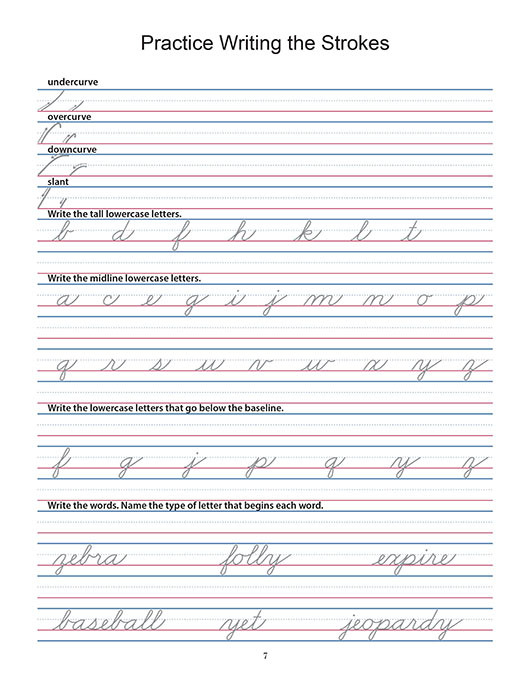 Practice Writing the Strokes
undercurve
overcurve
downcurve
slant
Write the tall lowercase letters.
b d f h k l t
Write the midline lowercase letters.
a c e g i j m n o p
q r s u v w x y z
Write the lowercase letters that go below the baseline.
f g j p q y z
Write the words. Name the type of letter that begins each word.
zebra folly expire
baseball yet jeopardy
7